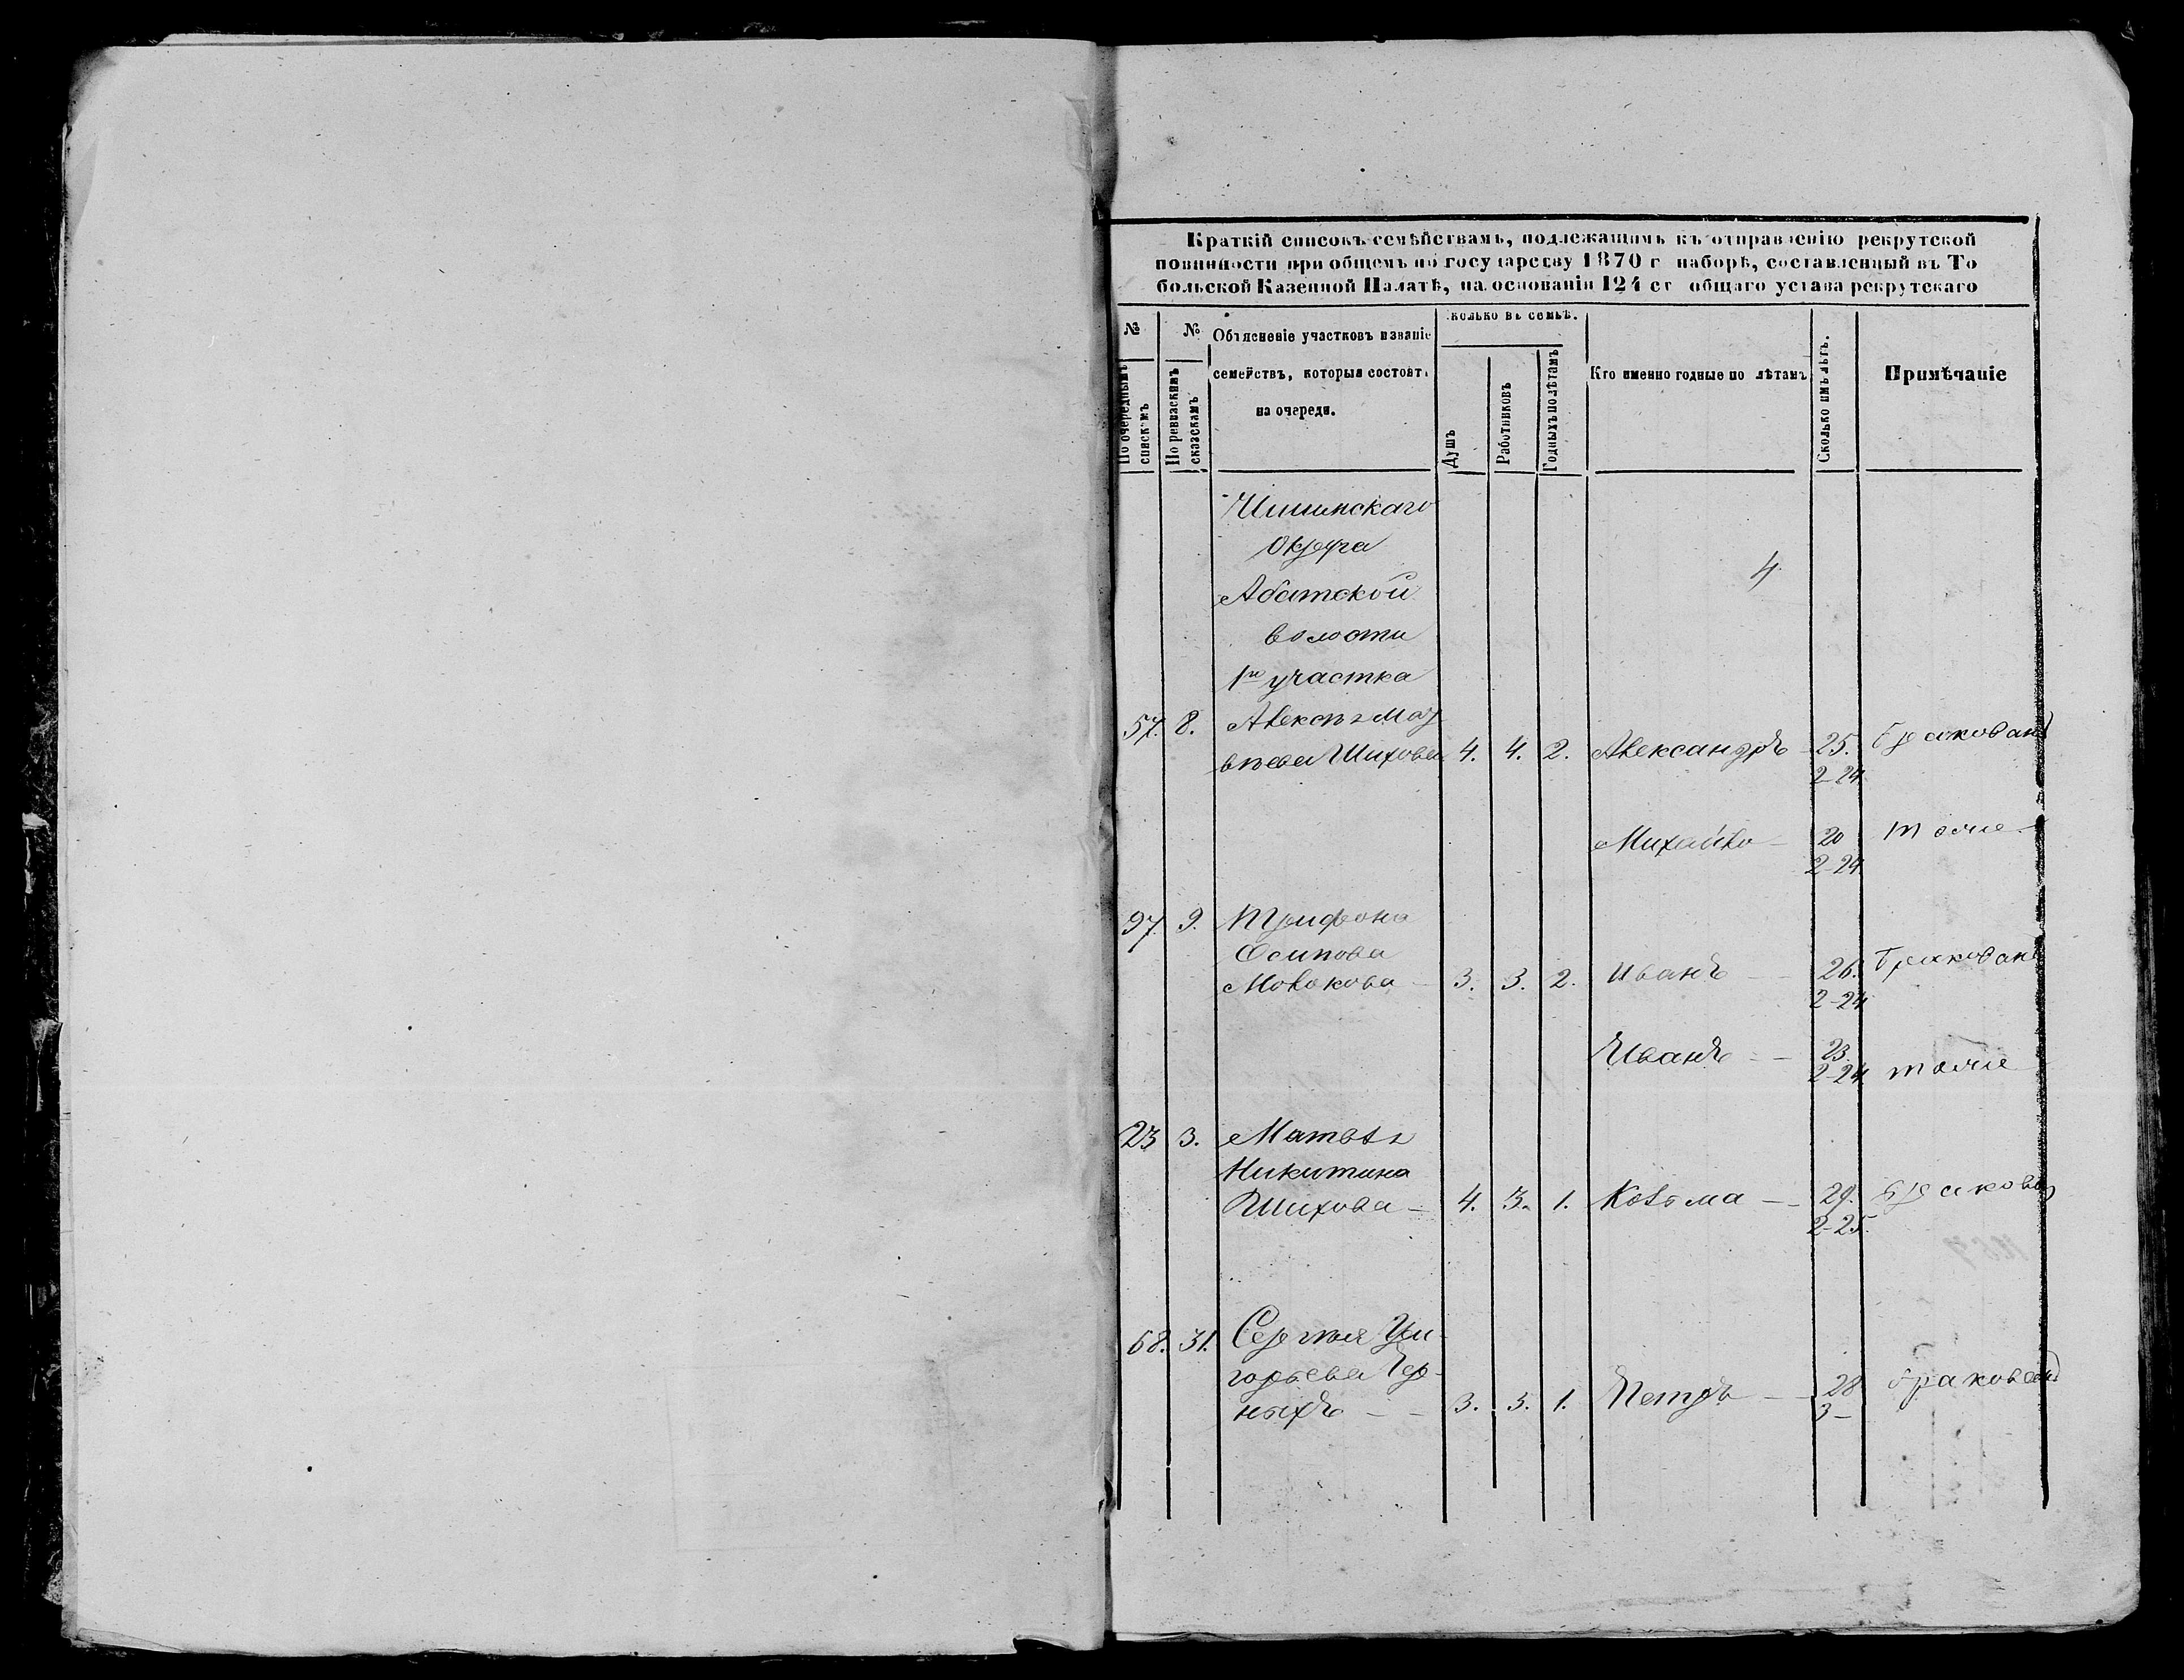 Краткій списокъ семѣйствамъ, подлежащимъ къ отправленію рекрутской
повинности при общемъ по государству 1870 г наборѣ, составленный въ То
больской Казенной Палатѣ, на основаніи 124 ст общаго устава рекрутскаго
№
По очереднымъ спискамъ
№
По ревизскимъ сказкамъ
Объясненіе участковъ и званіе
семействъ, которыя состоятъ
на очереди.
колько въ семьѣ.
Душъ
Работниковъ
Годныхъ по лѣтамъ
Кто именно годные по лѣтамъ
Сколько имъ лѣтъ.
Примѣчаніе
Ишимскаго
Округа
4
Абатской
волости
1го участка
57. 8. Алексѣя Мат
вѣева Шихова 4. 4. 2. Александръ 25. бракованъ
2-24
Михайло 20 тоже
2-24
97. 9. Трифона
Осипова
Молокова 3. 3. 2. Иванъ 26. бракованъ
2-24
Иванъ 23.
2-24 тоже
23 3. Матвѣя
Никитина
Шихова 4. 3. 1. Козьма 29.
2-25.
68. 31. Сергѣя Гри
горьева Чер
ныхъ 3. 3. 1. Петръ 28 бракованъ
3-